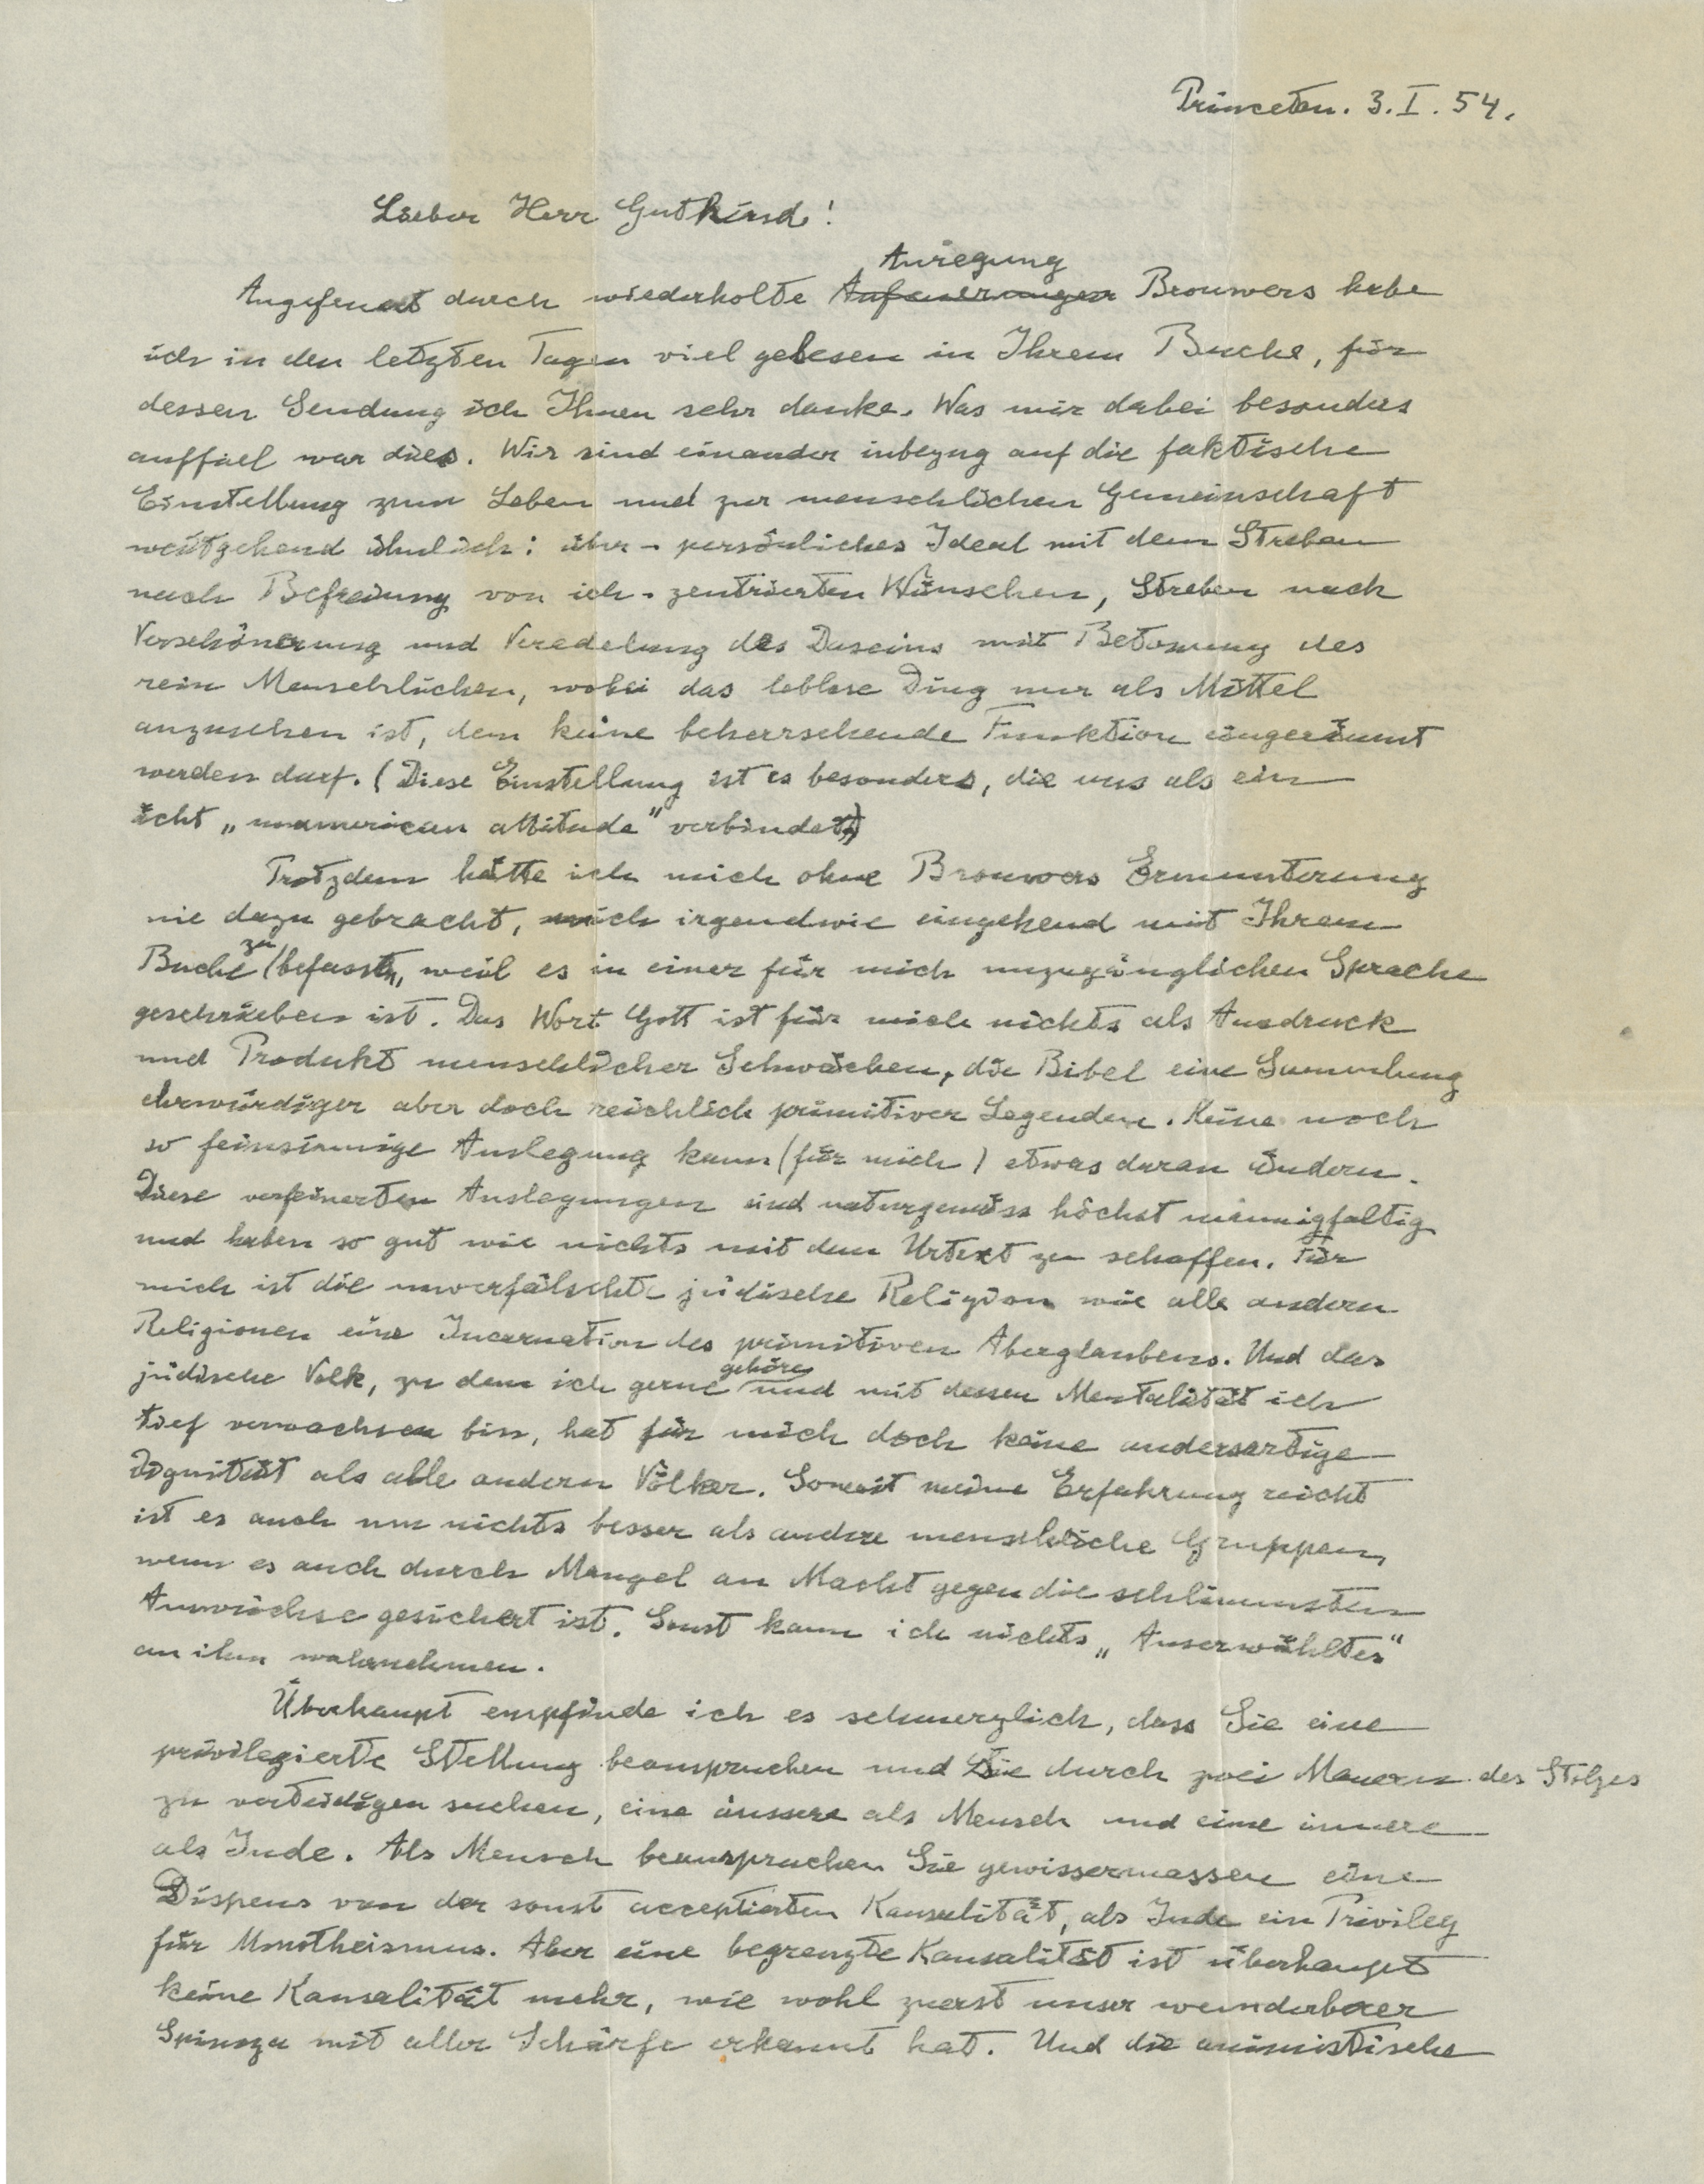 Princeton. 3. I. 54.
Lieber Herr Gutkind!
Anregung
Angefeuert durch wiederholte Anfeuerungen Brouwers habe
ich in den letzten Tagen viel gelesen in Ihrem Buche, für
dessen Sendung ich Ihnen sehr danke. Was mir dabei besonders
auffiel war dies. Wir sind einander inbezug auf die faktische
Einstellung zum Leben und zur menschlichen Gemeinschaft
weitgehend ähnlich: über-persönliches Ideal mit dem Streben
nach Befreiung von ich-zentrierten Wünschen, Streben nach
Verschönerung und Veredelung des Daseins mit Betonung des
rein Menschlichen, wobei das leblose Ding nur als Mittel
anzusehen ist, dem keine beherrschende Funktion eingeräumt
werden darf. (Diese Einstellung ist es besonders, die uns als ein
echt „unamerican attitude" verbindet.)
Trotzdem hätte ich mich ohne Brouwers Ermunterung
nie dazu gebracht, mich irgendwie eingehend mit Ihrem
zu
Buche befassen, weil es in einer für mich unzugänglichen Sprache
geschrieben ist. Das Wort Gott ist für mich nichts als Ausdruck
und Produkt menschlicher Schwächen, die Bibel eine Sammlung
ehrwürdiger aber doch reichlich primitiver Legenden. Keine noch
so feinsinnige Auslegung kann (für mich) etwas daran ändern.
Diese verfeinerten Auslegungen sind naturgemäss höchst mannigfaltig
und haben so gut wie nichts mit dem Urtext zu schaffen. Für
mich ist die unverfälschte jüdische Religion wie alle andern
Religionen eine Incarnation des primitiven Aberglaubens. Und das
gehöre
jüdische Volk, zu dem ich gerne und mit dessen Mentalität ich
tief verwachsen bin, hat für mich doch keine andersartige
Dignität als alle andern Völker. Soweit meine Erfahrung reicht
ist es auch um nichts besser als andere menschliche Gruppen,
wenn es auch durch Mangel an Macht gegen die schlimmsten
Auswüchse gesichert ist. Sonst kann ich nichts „Auserwähltes"
an ihm wahrnehmen.
Überhaupt empfinde ich es schmerzlich, dass Sie eine
privilegierte Stellung beanspruchen und sie durch zwei Mauern des Stolzes
zu verteidigen suchen, eine äussere als Mensch und eine innere
als Jude. Als Mensch beanspruchen Sie gewissermassen einen
Dispens von der sonst acceptierten Kausalität, als Jude ein Privileg
für Monotheismus. Aber eine begrenzte Kausalität ist überhaupt
keine Kausalität mehr, wie wohl zuerst unser wunderbarer
Spinoza mit aller Schärfe erkannt hat. Und die animistische